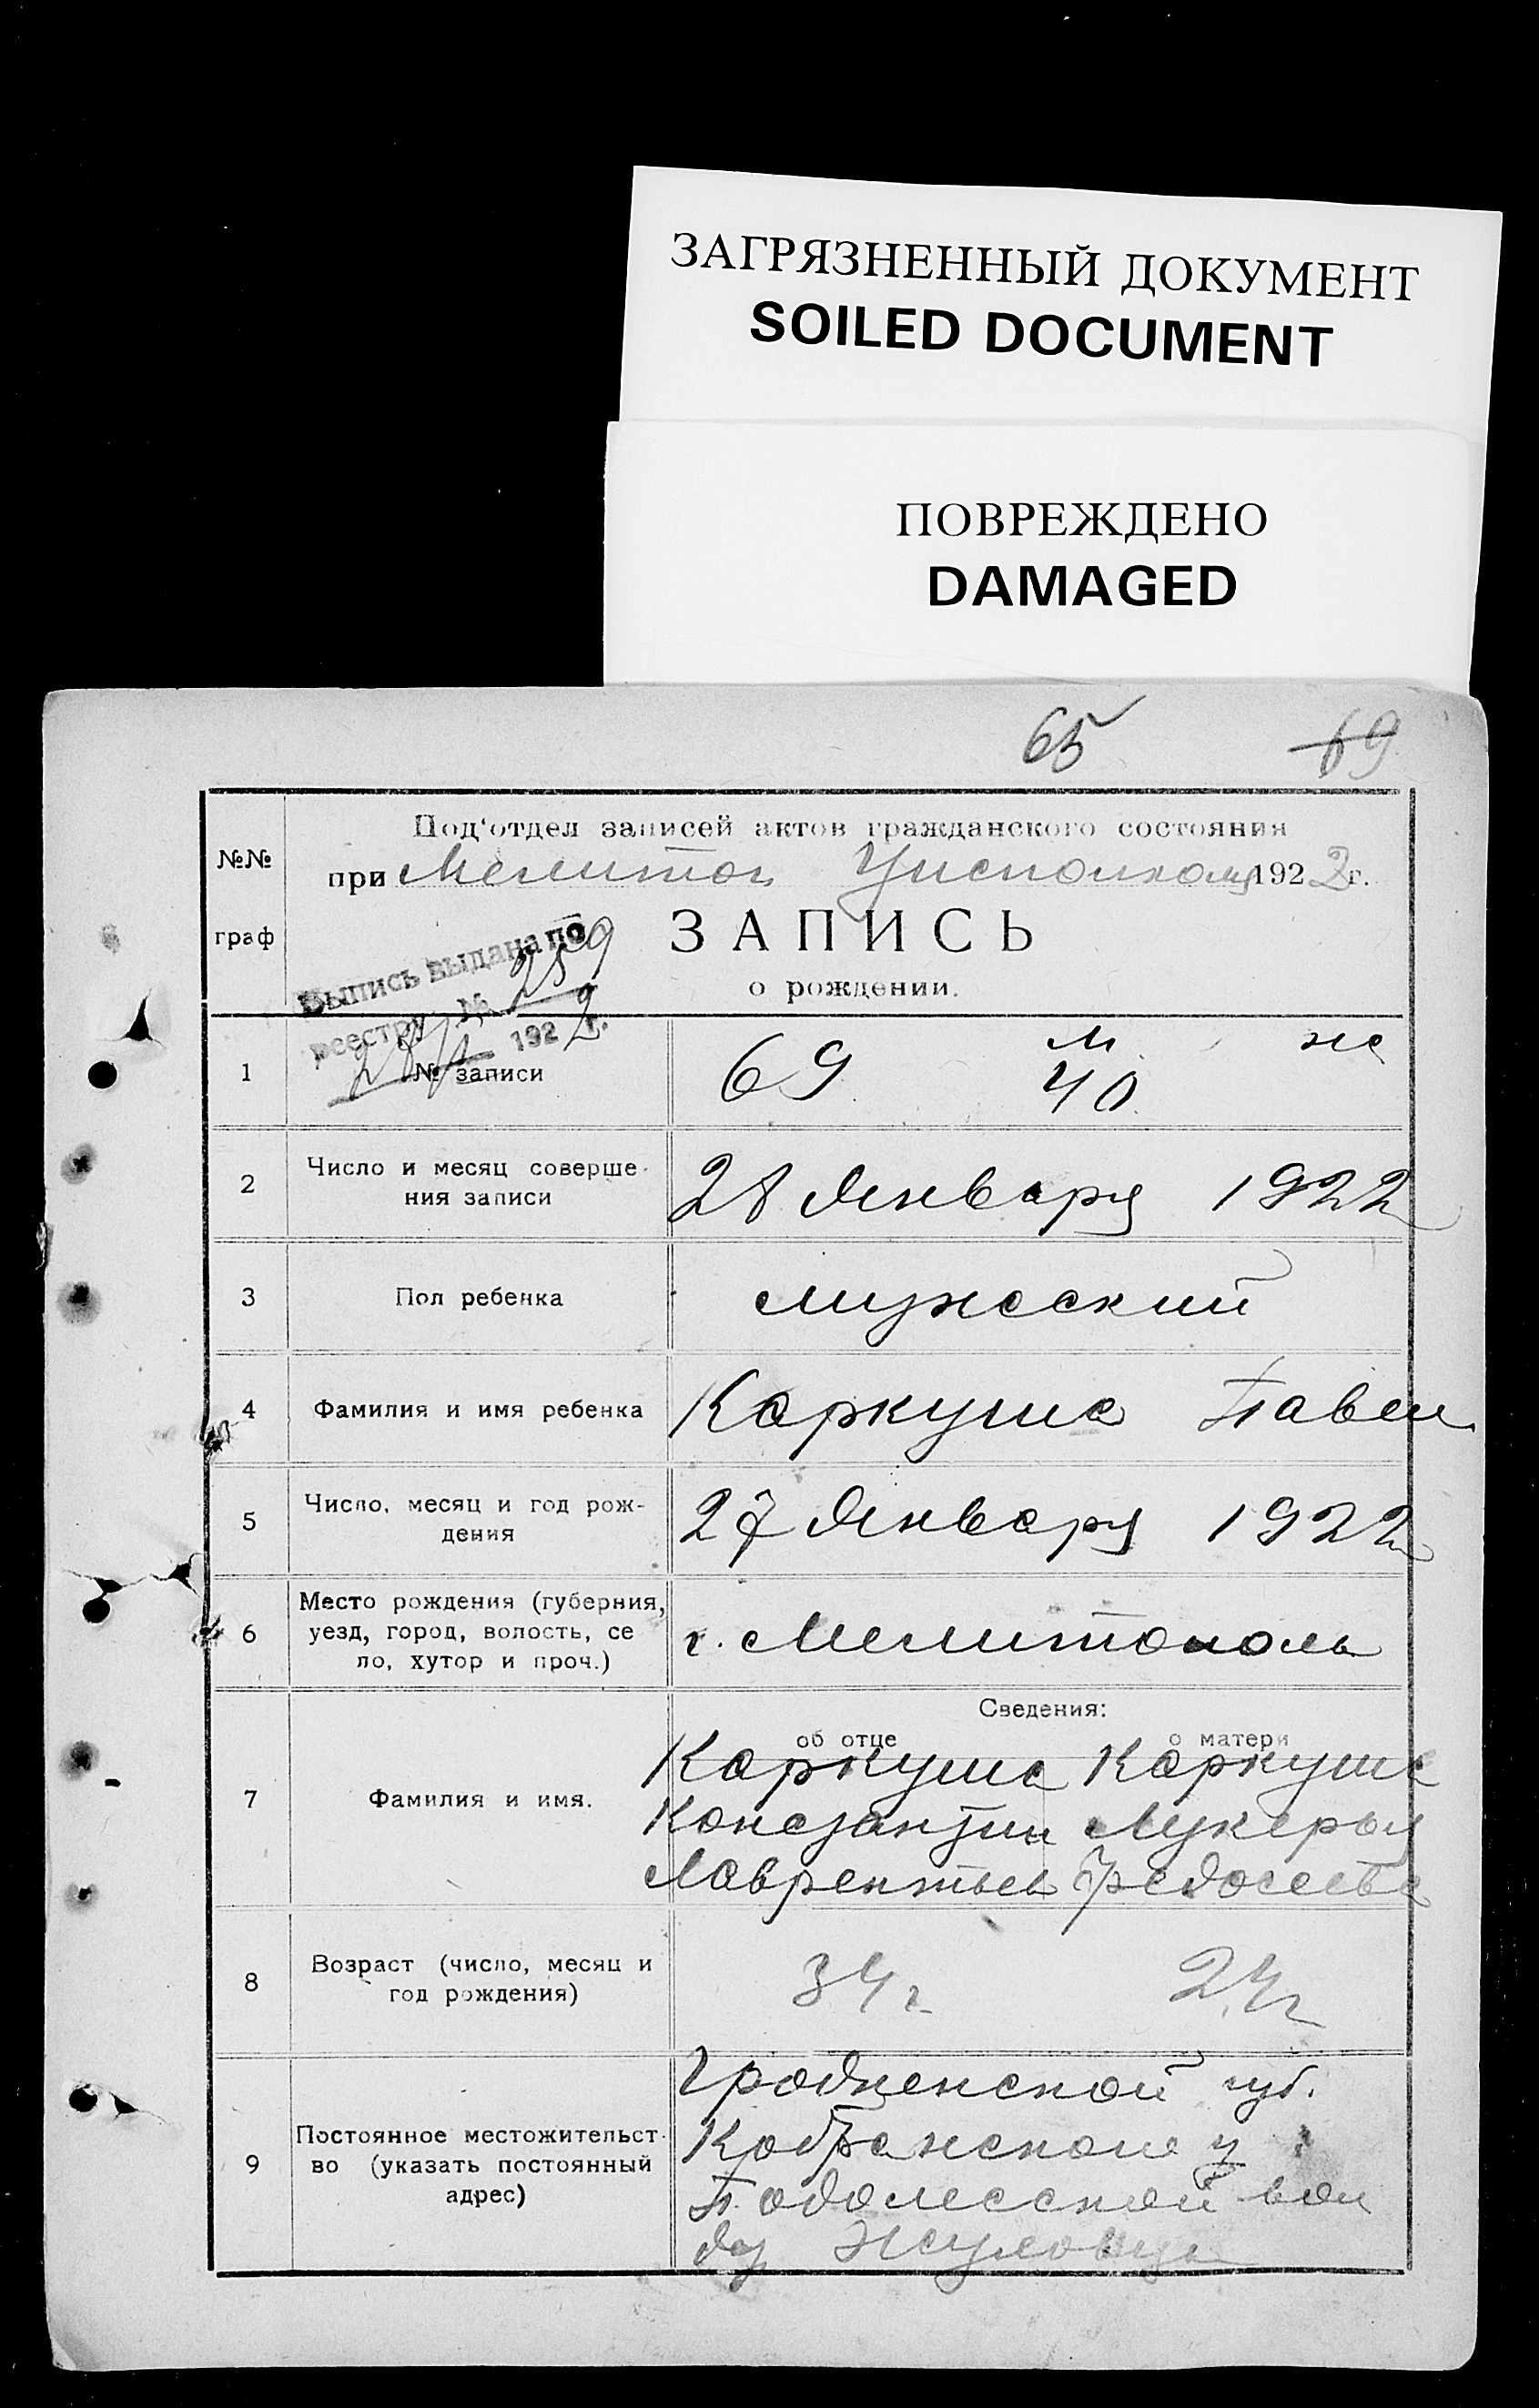 ЗАГРЯЗНЕННЫЙ ДОКУМЕНТ
SOILED DOCUMENT
ПОВРЕЖДЕНО
DAMAGED
65 69
№№ граф
Под'отдел записей актов гражданского состояния
при Мелитоп Уисполком 1922 г.
ЗАПИСЬ
о рождении.
Выпись выдана по
реестру №
1922 г.
1 № записи 69 м. 40 ж
2 Число и месяц соверше-
ния записи
28 Января 1922
3 Пол ребенка мужеский
4 Фамилия и имя ребенка Каркуша Павел
5 Число, месяц и год рож-
дения
27 Января 1922
6 Место рождения (губерния,
уезд, город, волость, се
ло, хутор и проч.)
г. Мелитополь
Сведения:
об отце о матери
7 Фамилия и имя.
Каркуша Каркуша
Константин Лукерья
Лаврентьев Федосеева
8 Возраст (число, месяц и
год рождения)
34 г 24 г
9 Постоянное местожительст-
во (указать постоянный
адрес)
Гродненской губ.
у
вол